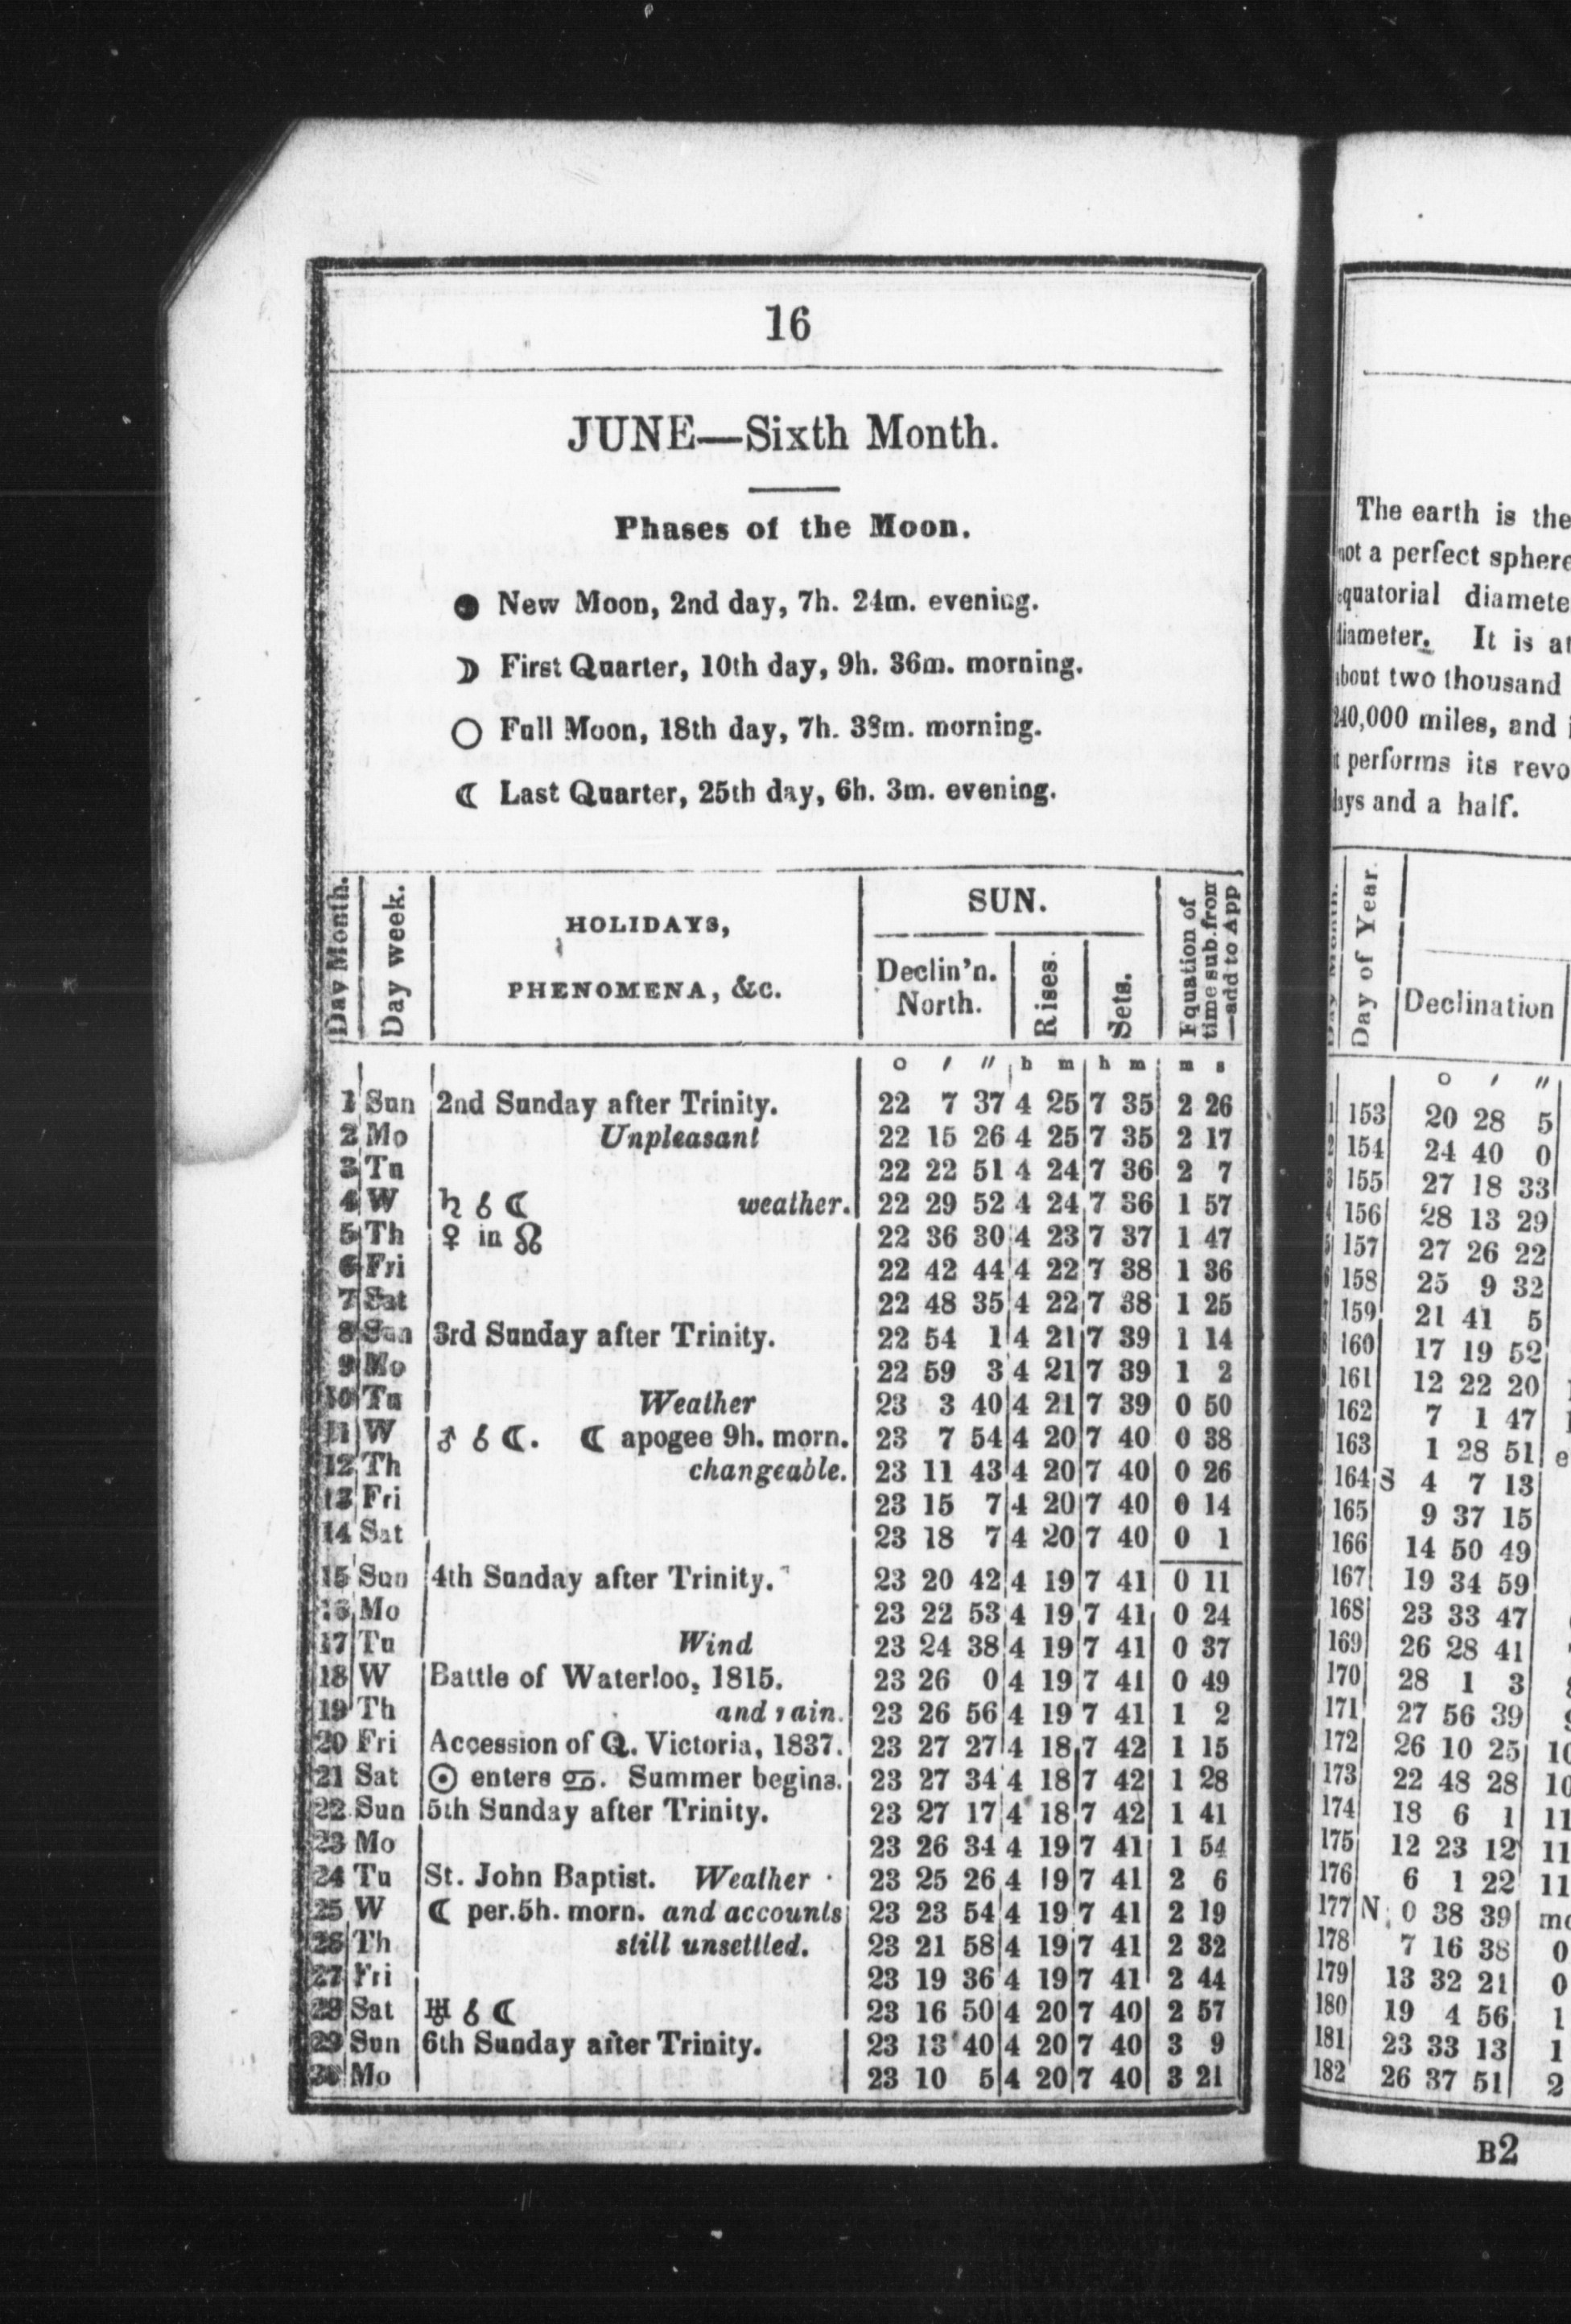 16
JUNE—Sixth Month.
Phases of the Moon.
● New Moon, 2nd day, 7h. 24m. evening.
☽ First Quarter, 10th day, 9h. 36m. morning.
○ Full Moon, 18th day, 7h. 38m. morning.
☾ Last Quarter, 25th day, 6h. 3m. evening.
Day Month. Day week. HOLIDAYS, PHENOMENA, &c. SUN. Declin'n. North. Rises. Sets. Equation of time sub. from —add to App
o ′ ″ h m h m m s
1 Sun 2nd Sunday after Trinity. 22 7 37 4 25 7 35 2 26
2 Mo Unpleasant 22 15 26 4 25 7 35 2 17
3 Tu 22 22 51 4 24 7 36 2 7
4 W ♄ ☌ ☾ weather. 22 29 52 4 24 7 36 1 57
5 Th ♀ in ☊ 22 36 30 4 23 7 37 1 47
6 Fri 22 42 44 4 22 7 38 1 36
7 Sat 22 48 35 4 22 7 38 1 25
8 Sun 3rd Sunday after Trinity. 22 54 1 4 21 7 39 1 14
9 Mo 22 59 3 4 21 7 39 1 2
10 Tu Weather 23 3 40 4 21 7 39 0 50
11 W ♂ ☌ ☾. ☾ apogee 9h. morn. 23 7 54 4 20 7 40 0 38
12 Th changeable. 23 11 43 4 20 7 40 0 26
13 Fri 23 15 7 4 20 7 40 0 14
14 Sat 23 18 7 4 20 7 40 0 1
15 Sun 4th Sunday after Trinity. 23 20 42 4 19 7 41 0 11
16 Mo 23 22 53 4 19 7 41 0 24
17 Tu Wind 23 24 38 4 19 7 41 0 37
18 W Battle of Waterloo, 1815. 23 26 0 4 19 7 41 0 49
19 Th and rain. 23 26 56 4 19 7 41 1 2
20 Fri Accession of Q. Victoria, 1837. 23 27 27 4 18 7 42 1 15
21 Sat ☉ enters ♋. Summer begins. 23 27 34 4 18 7 42 1 28
22 Sun 5th Sunday after Trinity. 23 27 17 4 18 7 42 1 41
23 Mo 23 26 34 4 19 7 41 1 54
24 Tu St. John Baptist. Weather 23 25 26 4 19 7 41 2 6
25 W ☾ per. 5h. morn. and accounts 23 23 54 4 19 7 41 2 19
26 Th still unsettled. 23 21 58 4 19 7 41 2 32
27 Fri 23 19 36 4 19 7 41 2 44
28 Sat ♅ ☌ ☾ 23 16 50 4 20 7 40 2 57
29 Sun 6th Sunday after Trinity. 23 13 40 4 20 7 40 3 9
30 Mo 23 10 5 4 20 7 40 3 21
The earth is the
not a perfect sphere
equatorial diamete
diameter. It is at
about two thousand
240,000 miles, and i
t performs its revo
days and a half.
Day Month. Day of Year. Declination
o ′ ″
1 153 20 28 5
2 154 24 40 0
3 155 27 18 33
4 156 28 13 29
5 157 27 26 22
6 158 25 9 32
159 21 41 5
160 17 19 52
161 12 22 20
162 7 1 47
163 1 28 51 e
164 S 4 7 13
165 9 37 15
166 14 50 49
167 19 34 59
168 23 33 47
169 26 28 41
170 28 1 3
171 27 56 39
172 26 10 25 10
173 22 48 28 10
174 18 6 1 11
175 12 23 12 11
176 6 1 22 11
177 N 0 38 39 mo
178 7 16 38 0
179 13 32 21 0
180 19 4 56 1
181 23 33 13 1
182 26 37 51 2
B2